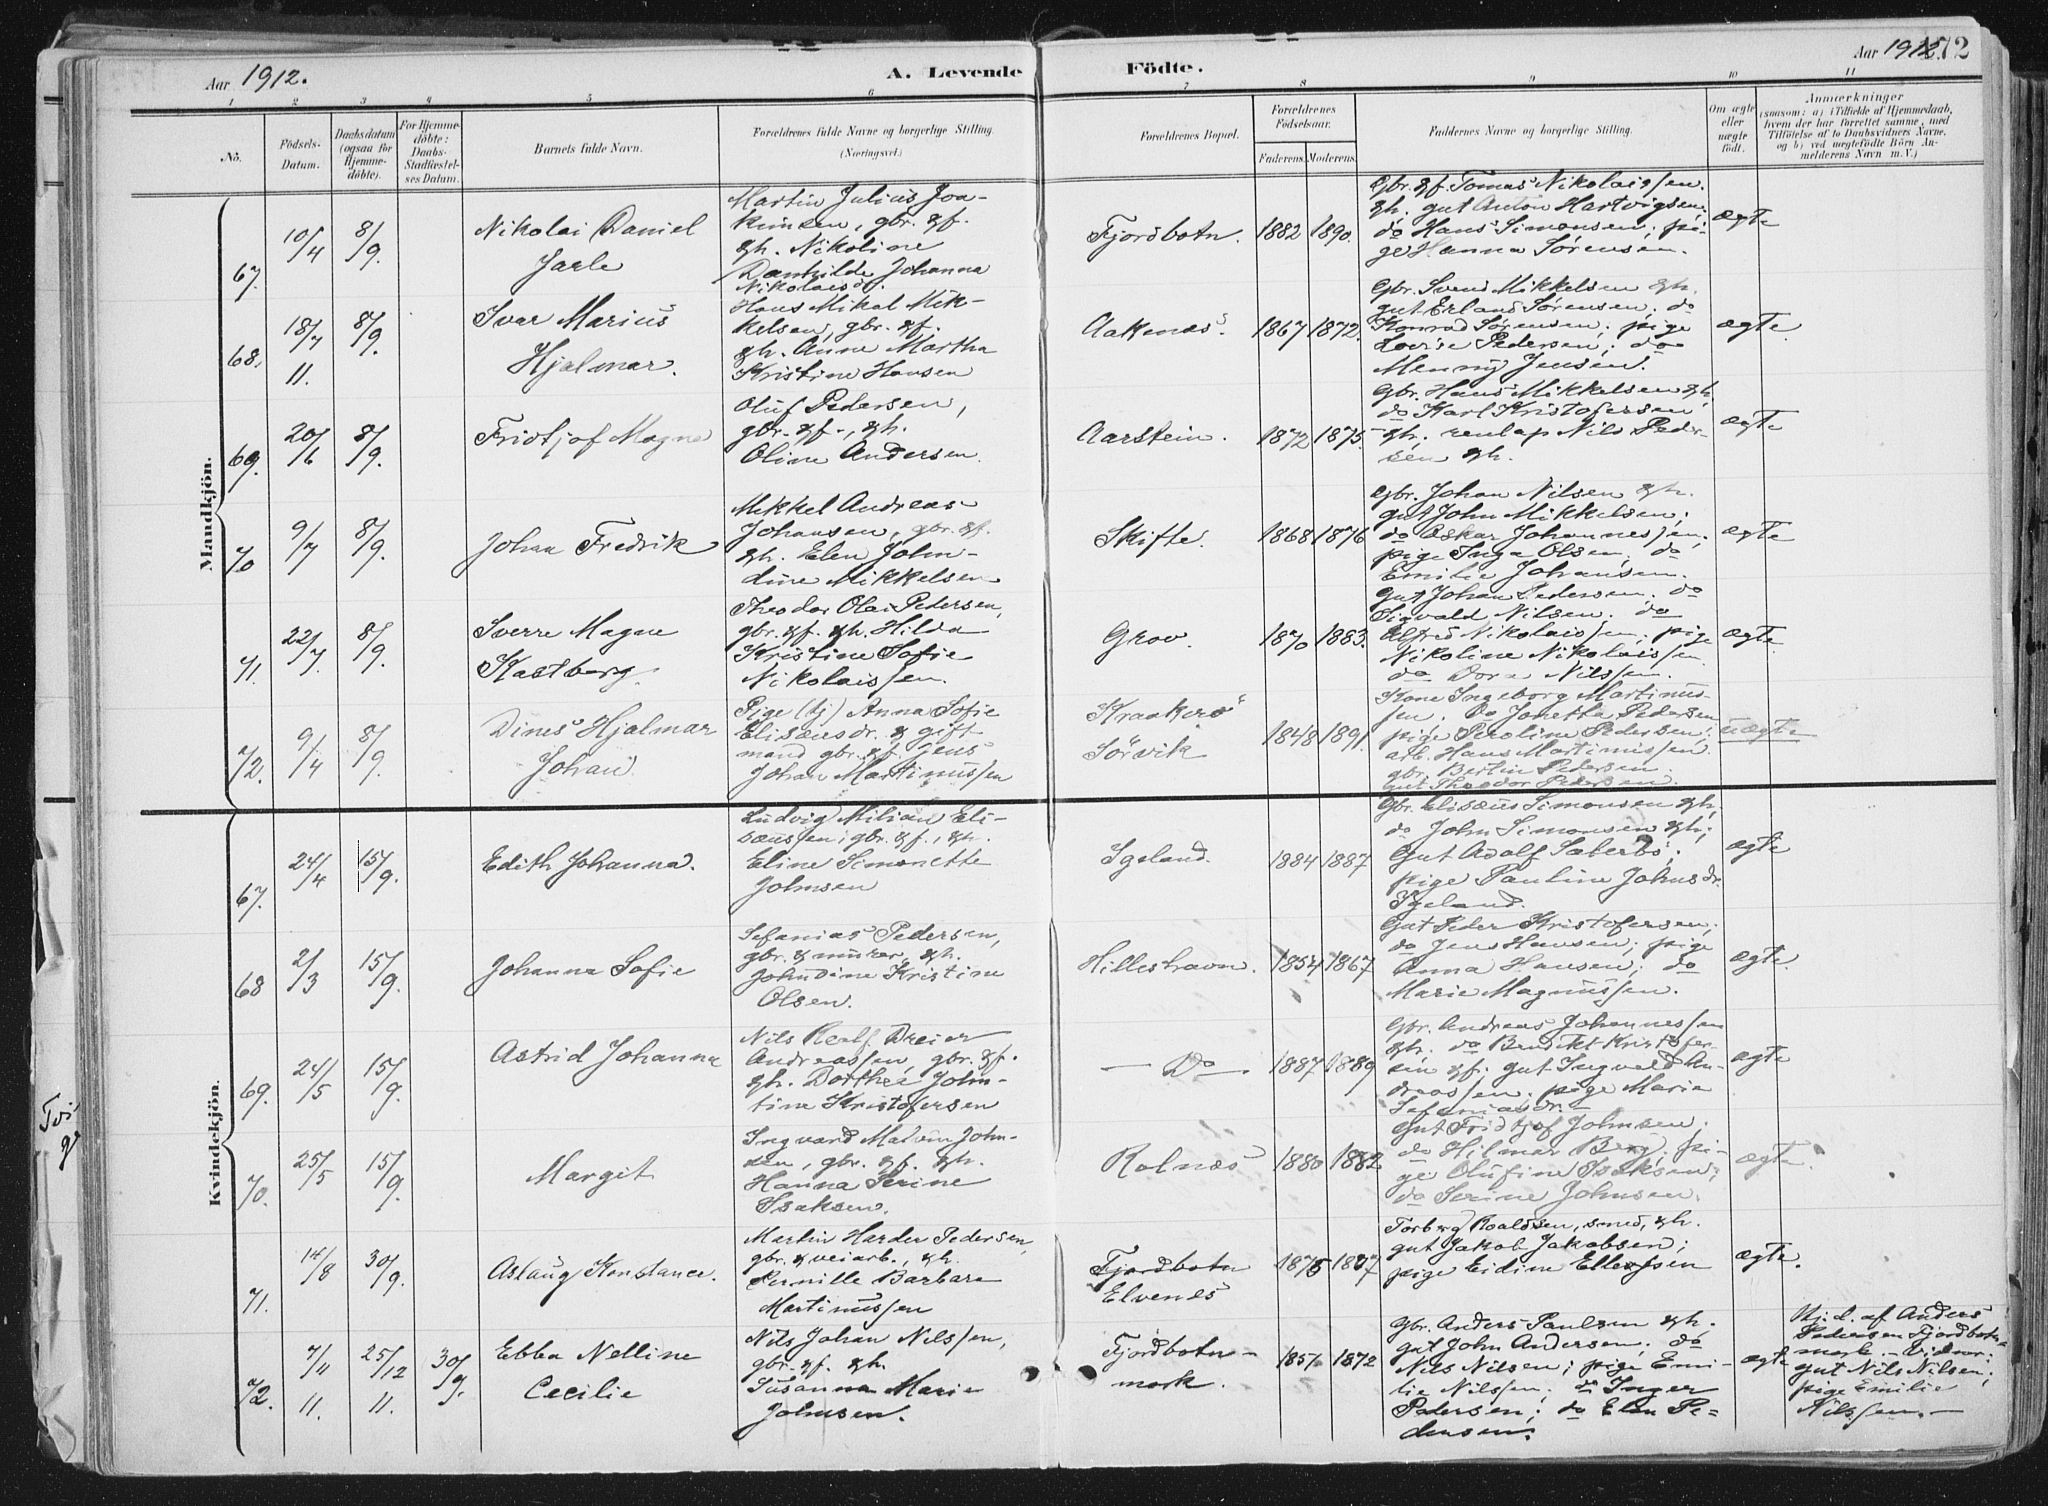 Aar 1912.
A. Levende Fødte.
Aar 1912.
172
1 2 3 4 5 6 7 8 9 10 11
No.
Födsels-
Datum.
Daabsdatum
(ogsaa for
Hjemme-
döbte).
For Hjemme-
döbte:
Daabs-
Stadfæstel-
ses Datum.
Barnets fulde Navn.
Forældrenes fulde Navne og borgerlige Stilling.
(Næringsvei.)
Forældrenes Bopæl.
Forældrenes
Födselsaar.
Faderens. Moderens.
Faddernes Navne og borgerlige Stilling.
Om ægte
eller
uægte
født.
Anmærkninger
(saasom: a) i Tilfælde af Hjemmedaab,
hvem der har forrettet samme, med
Tilföielse af to Daabsvidners Navne.
og b) ved uægtefödte Börn An-
melderens Navn m.V.)
Mandkjön.
67. 10/4 8/9.
Nikolai Daniel
Jarle
Martin Julius Joa-
kimsen, gbr. & f.
& h. Nikoline
Danhilde Johanna
Nikolaisd.
Fjordbotn. 1882 1890.
Gbr. & f. Tomas Nikolaissen.
& h. gut Anton Hartvigsen;
do Hans Simonsen; pi-
ge Hanna Sørensen.
ægte
68. 18/7 11. 8/9.
Ivar Marius
Hjalmar.
Hans Mikal Mik-
kelsen, gbr. & f.
& h. Anne Martha
Kristine Hansen
Aaknes. 1867 1872.
Gbr. Svend Mikkelsen & h.
gut Erland Sørensen; do
Konrad Sørensen; pige
Lovise Pedersen; do
Menny Jensen.
ægte.
69. 20/6 8/9.
Fridtjof Magne
Oluf Pedersen,
gbr. & f., & h.
Oline Andersen.
Aarstein. 1872 1875.
Gbr. Hans Mikkelsen & h.
do Karl Kristofersen
& h. renlap Nils Peder-
sen & h.
ægte
70 9/7 8/9.
Johan Fredrik
Mikkel Andreas
Johansen, gbr. & f.
& h. Elen John-
dine Mikkelsen
Skifte. 1868 1876
Gbr. Johan Nilsen & h.
gut John Mikkelsen;
do Oskar Johannessen;
pige Inga Olsen; do
Emilie Johansen.
ægte
71. 22/7 8/9.
Sverre Magne
Kastberg.
Theodor Olai Pedersen,
gbr. & f. & h. Hilda
Kristine Sofie
Nikolaissen.
Grov. 1870 1883.
Gut Johan Pedersen. do
Sigvald Nilsen. do
Alfred Nikolaissen; pige
Nikoline Nikolaissen.
do Dora Nilssen.
ægte.
72. 9/4 8/9.
Dines Hjalmar
Johan.
Pige (tj) Anna Sofie
Elisæusdr. & gift
mand gbr. & f. Jens
Johan Martinussen
Kraakrø
Sørvik 1848 1891.
Kone Ingeborg Martinus-
sen. Do Jonetta Pedersen
pige Peroline Pedersen;
arb. Hans Martinussen.
gbr. Bertin Pedersen.
gut Theodor Pedersen.
uægte
Kvindekjön.
67. 24/4 15/9.
Edith Johanna.
Ludvig Milian Eli-
sæussen; gbr. & f., & h.
Eline Simonette
Johnsen
Igeland. 1884 1887
Gbr. Elisæus Simonsen & h;
do John Simonsen & h;
Gut Adolf Sæterbø;
pige Pauline Johnsdr.
Igeland.
ægte
68 2/3 15/9.
Johanna Sofie
Sefanias Pedersen,
gbr. & murer, & h.
Johndine Kristine
Olsen.
Hilleshavn. 1854 1867
Gut Peder Kristofersen;
do Jens Hansen; pige
Anna Hansen; do
Marie Magnussen.
ægte.
69. 24/5 15/9.
Astrid Johanna
Nils Dreier
Andreassen, gbr. & f.
& h. Dorthea John-
tine Kristofersen
— Do —. 1887 1889
Gbr. Andreas Johannessen
& h. do Benedikt Kristofer-
sen & f. gut Ingvald An-
dreassen. pige Marie
Sefaniasdr.
ægte
70. 25/5 15/9.
Margit
Ingvard Malvin John-
sen, gbr. & f. & h.
Hanna Serine
Isaksen.
Rolnes 1880 1882
Gut Fridtjof Johnsen;
do Hilmar Berg. pi-
ge Olufine Isaksen;
do Serine Johnsen.
ægte.
71. 14/8 30/9.
Aslaug Konstance.
Martin Harder Pedersen,
gbr. & veiarb., & h.
Pernille Barbara
Martinussen
Fjordbotn
Elvenes 1875 1877
Torberg Roaldsen, smed, & h.
gut Jakob Jakobsen;
pige Eidine Ellefsen
ægte.
72. 7/11 11. 25/12 11. 30/9.
Ebba Nelline
Cecilie
Nils Johan Nilssen,
gbr. & f. & h.
Susanna Marie
Johnsen.
Fjordbotn-
mark. 1857 1872
Gbr. Anders Paulsen & h.
gut John Andersen. do
Nils Nilsen; pige Emi-
lie Nilssen; do Inger
Pedersen; do Elen Pe-
dersen.
ægte
Hj. d. af Anders
Pedersen Fjordbotn-
mark. — Vidner:
gut Nils Nilsen;
pige Emilie
Nilssen. —